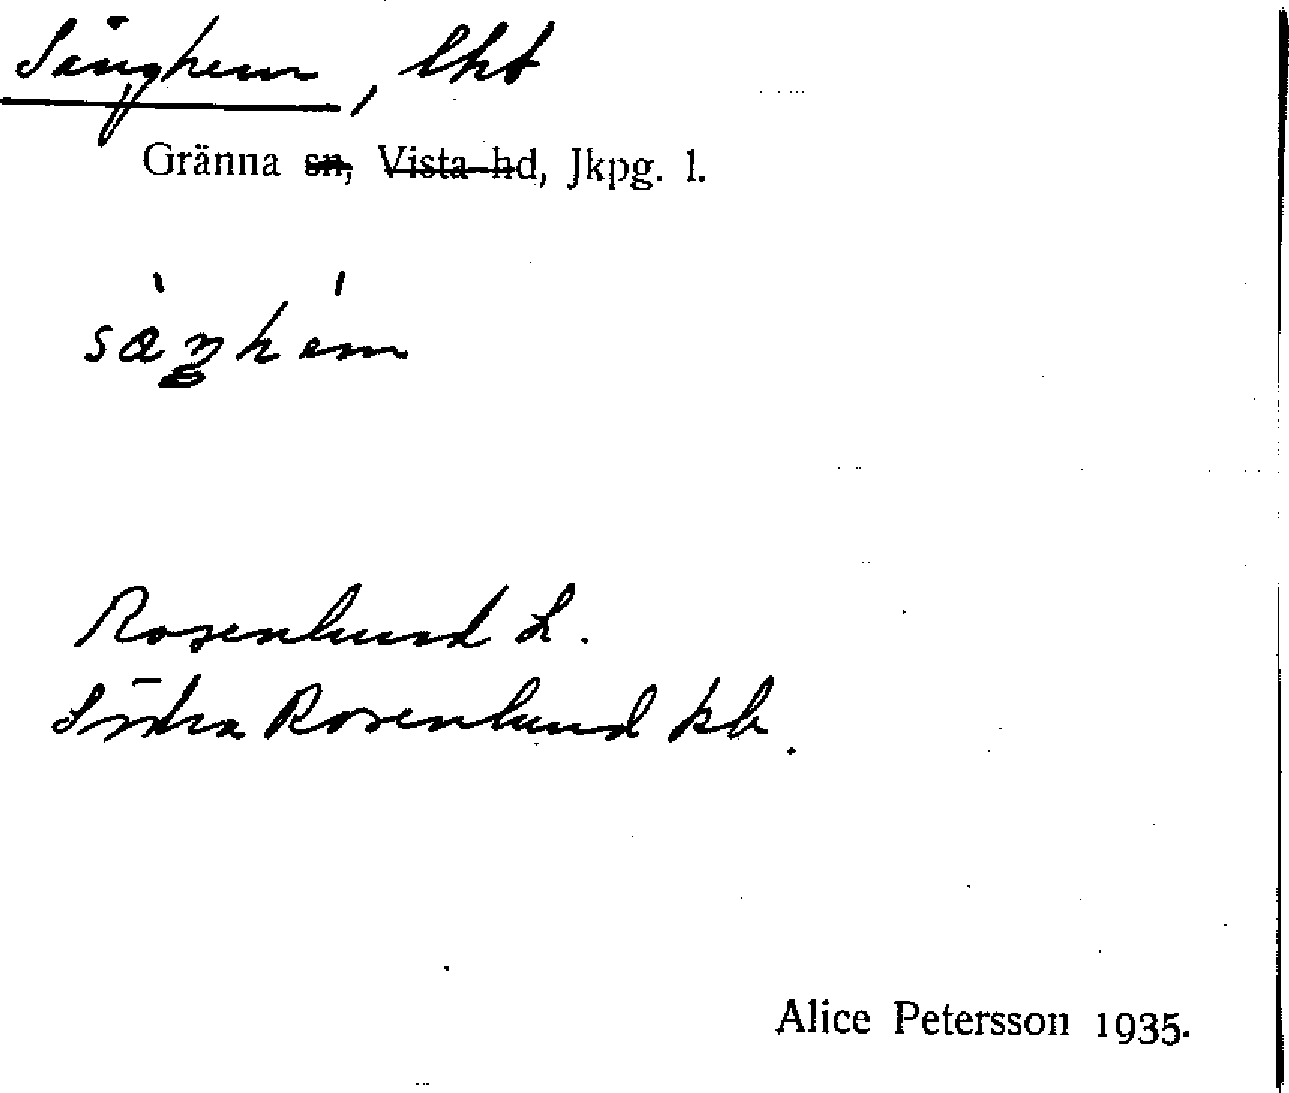 Sånghem, lht
Gränna sn, Vista hd, Jkpg. l.
sàŋhém
Rosenlund L.
Södra Rosenlund kb.
Alice Petersson 1935.